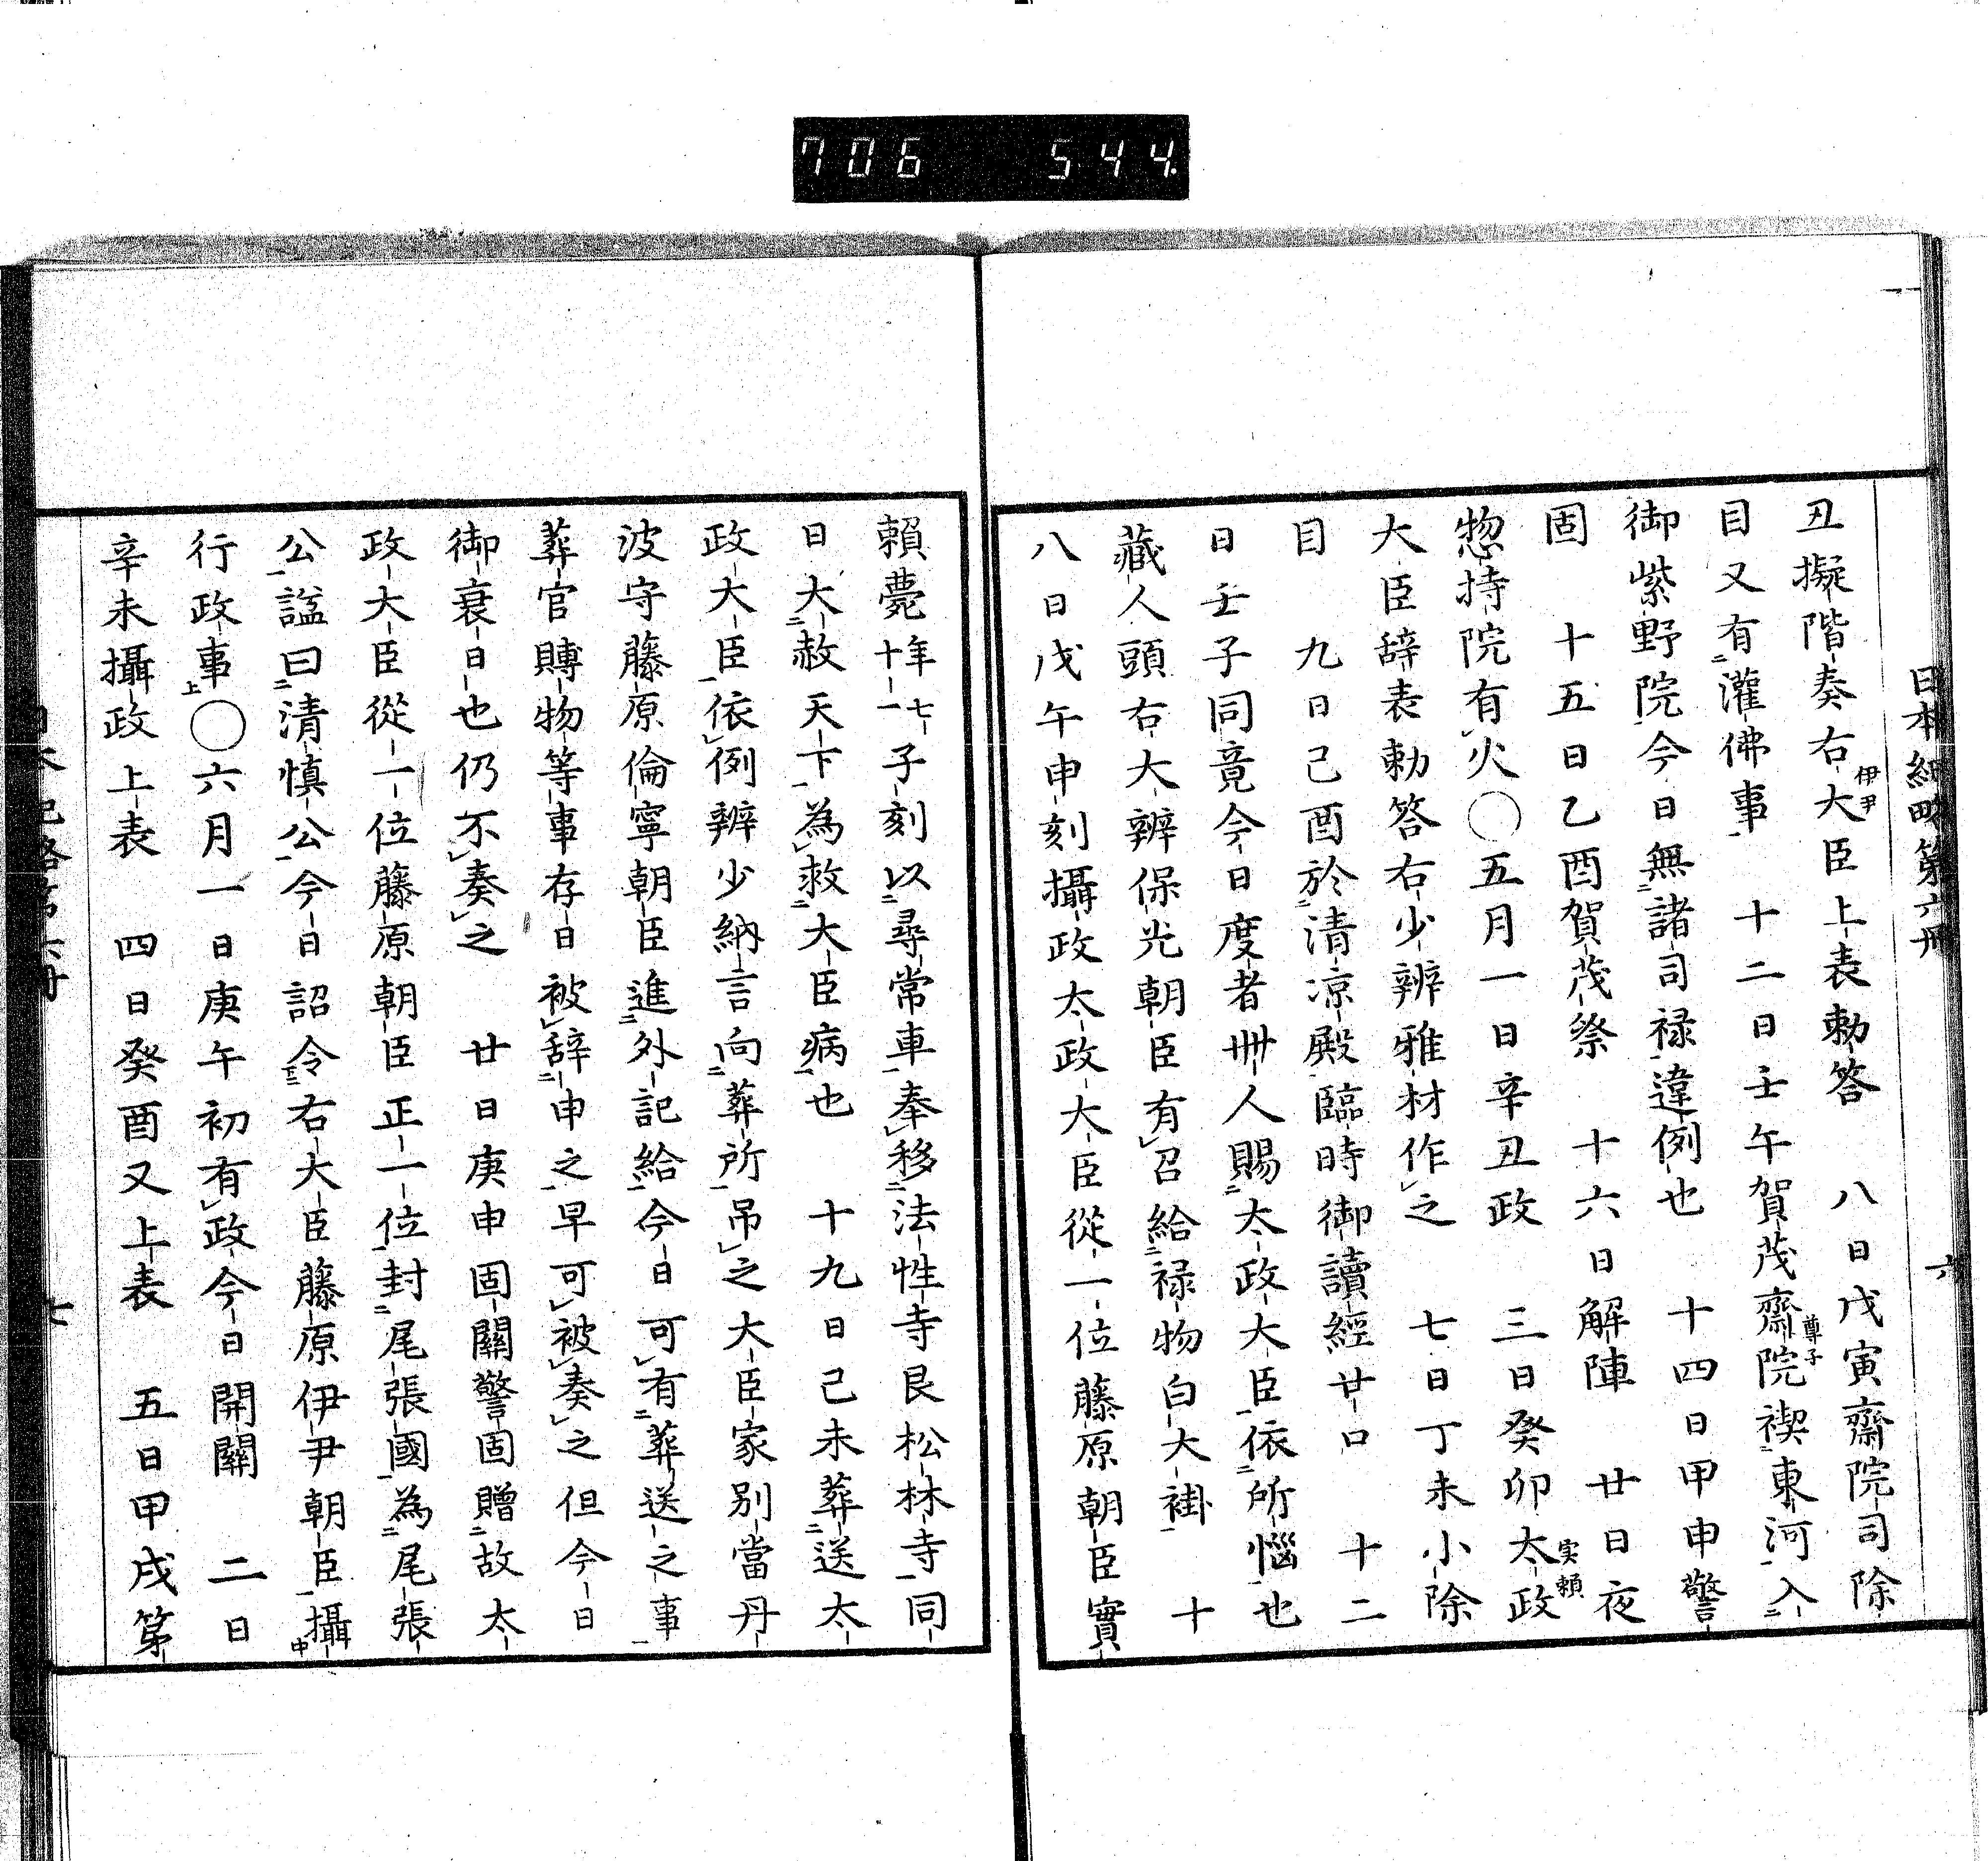 706 544
日本紀略第六冊 六
丑擬階奏右大臣伊尹上表勅答 八日戊寅齋院司除
目又有灌佛事 十二日壬午賀茂齋院尊子禊東河入
御紫野院今日無諸司禄違例也 十四日甲申警
固 十五日乙酉賀茂祭 十六日解陣 廿日夜
惣持院有火○五月一日辛丑政 三日癸卯太政
大臣実頼辞表勅答右少辨雅材作之 七日丁未小除
目 九日己酉於清凉殿臨時御讀經廿口 十二
日壬子同竟今日度者卌人賜太政大臣依所惱也
藏人頭右大辨保光朝臣有召給禄物白大褂 十
八日戊午申刻攝政太政大臣從一位藤原朝臣實
頼薨年七十一子刻以尋常車奉移法性寺艮松林寺同
日大赦天下為救大臣病也 十九日己未葬送太
政大臣依例辨少納言向葬所吊之大臣家別當丹
波守藤原倫寧朝臣進外記給今日可有葬送之事
葬官賻物等事存日被辞申之早可被奏之但今日
御衰日也仍不奏之 廿日庚申固關警固贈故太
政大臣從一位藤原朝臣正一位封尾張國為尾張
公謚曰清慎公今日詔令右大臣藤原伊尹朝臣攝
行政事○六月一日庚午初有政今日開關 二日
辛未攝政上表 四日癸酉又上表 五日甲戌第
日本紀略第六冊 七